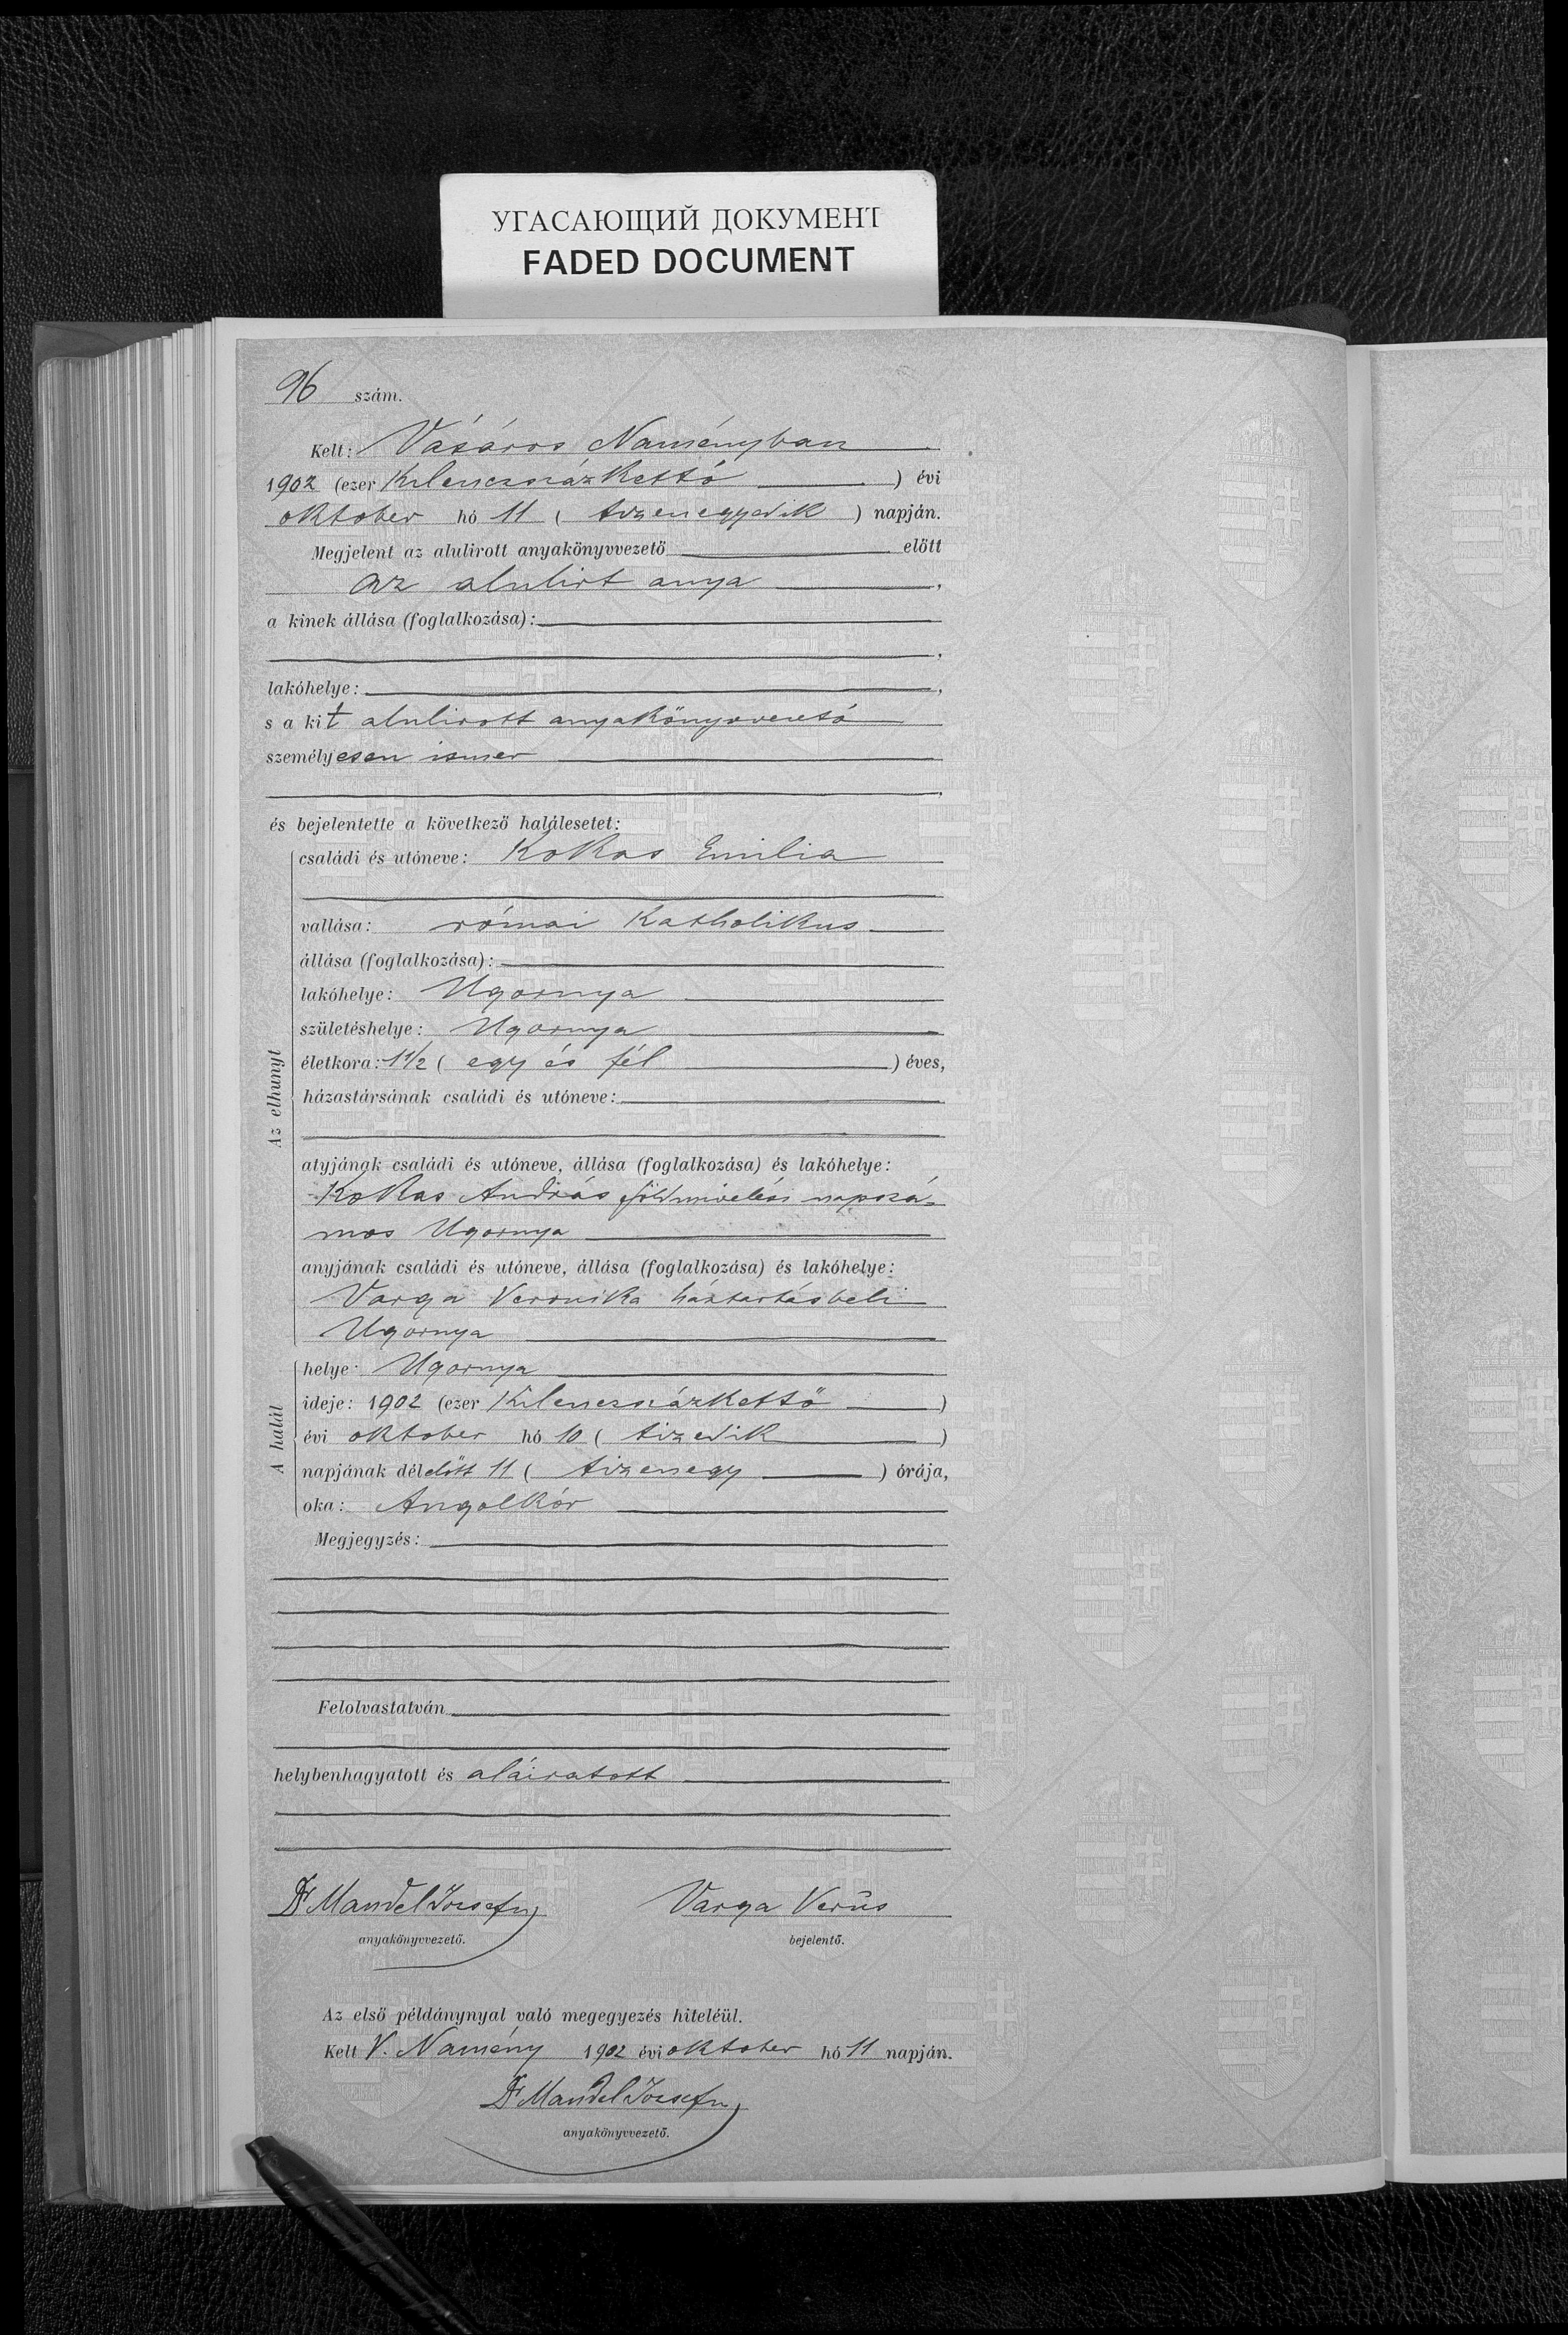 УГАСАЮЩИЙ ДОКУМЕНТ
FADED DOCUMENT
96 szám.
Kelt: Vásáros Naményban
1902 (ezer kilencszázkettő ) évi
oktober hó 11 ( tizenegyedik ) napján.
Megjelent az alulirott anyakönyvvezető előtt
az alulirt anya ,
a kinek állása (foglalkozása):
,
lakóhelye: ,
s a kit alulirott anyakönyvvezető
személyesen ismer
,
és bejelentette a következő halálesetet:
Az elhunyt
családi és utóneve: Kokas Emilia
vallása: római katholikus
állása (foglalkozása):
lakóhelye: Ugornya
születéshelye: Ugornya
életkora: 1 1/2 ( egy és fél ) éves,
házastársának családi és utóneve:
atyjának családi és utóneve, állása (foglalkozása) és lakóhelye:
Kokas András földmivelési napszá-
mos Ugornya
anyjának családi és utóneve, állása (foglalkozása) és lakóhelye:
Varga Veronika háztartásbeli
Ugornya
A halál
helye: Ugornya
ideje: 1902 (ezer kilencszázkettő )
évi oktober hó 10 ( tizedik )
napjának délelőtt 11 ( tizenegy ) órája,
oka: Angolkór
Megjegyzés:
Felolvastatván
helybenhagyatott és aláiratott
Dr Mandel József
Varga Verus
anyakönyvvezető.
bejelentő.
Az első példánynyal való megegyezés hiteléül.
Kelt V. Namény 1902 évi oktober hó 11 napján.
Dr Mandel József
anyakönyvvezető.